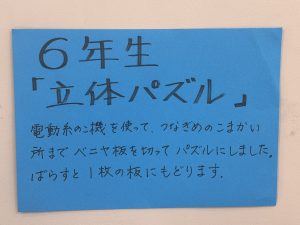 6年生
「立体パズル」
電動糸のこ機を使って、つなぎめのこまかい
所までベニヤ板を切ってパズルにしました。
ばらすと1枚の板にもどります。